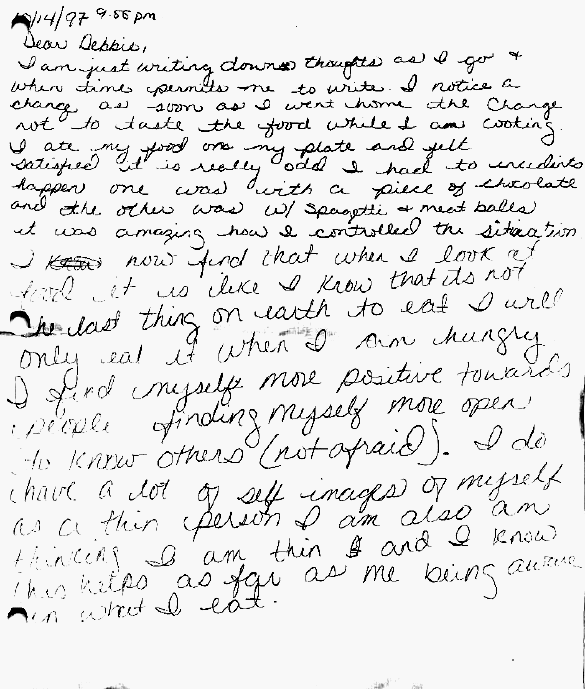 10/14/97 9:55 pm
Dear Debbie,
I am just writing down thoughts as I go +
when time permits me to write. I notice a
change as soon as I went home the Change
not to taste the food while I am cooking.
I ate my food on my plate and felt
satisfied it is really odd I had to incidents
happen one was with a piece of chocolate
and the other was w/ Spagetti + meat balls
it was amazing how I controlled the sitiration
I now find that when I look at
food it is like I know that its not
the last thing on earth to eat I will
only eat it when I am hungry
I find myself more positive towards
people finding myself more open
to know others (not afraid). I do
have a lot of self images of myself
as a thin person I am also am
thinking I am thin and I know
this helps as far as me being aware
in what I eat.